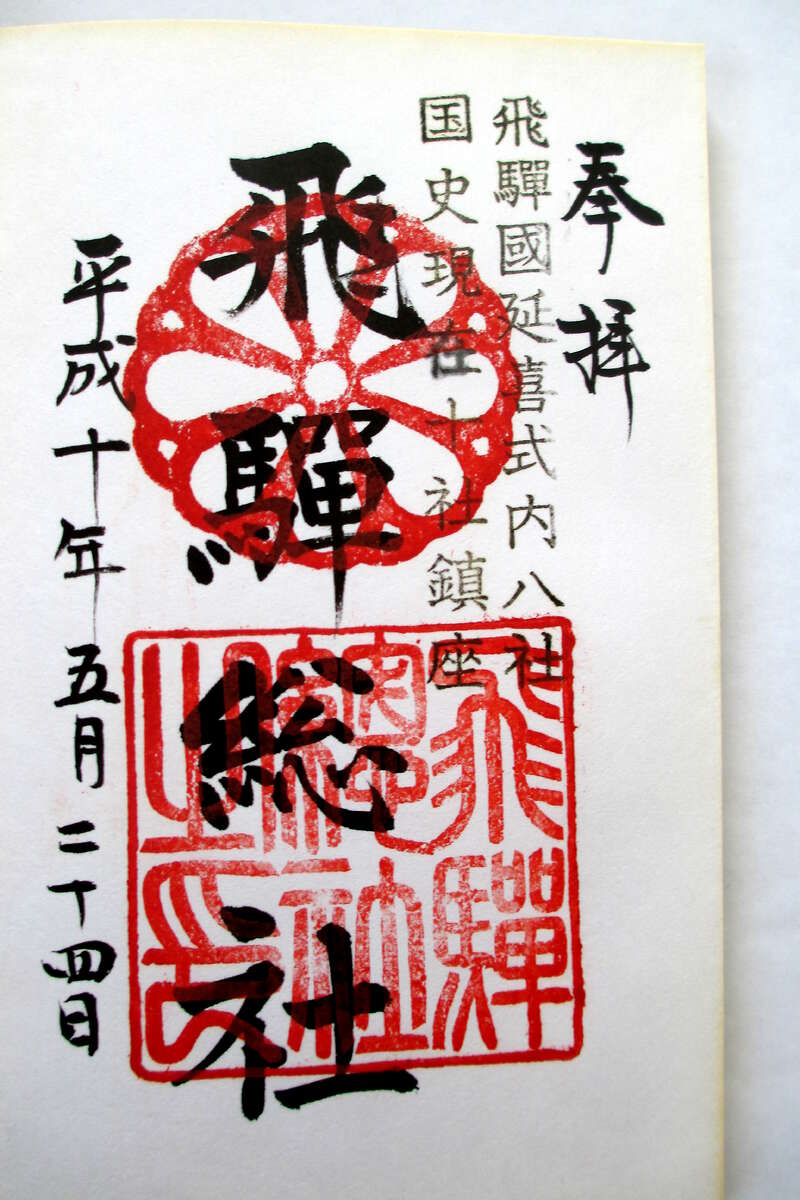 奉拝
飛驒國延喜式内八社
国史現在十社鎮座
飛驒総社
平成十年五月二十四日
飛驒
總社
之印